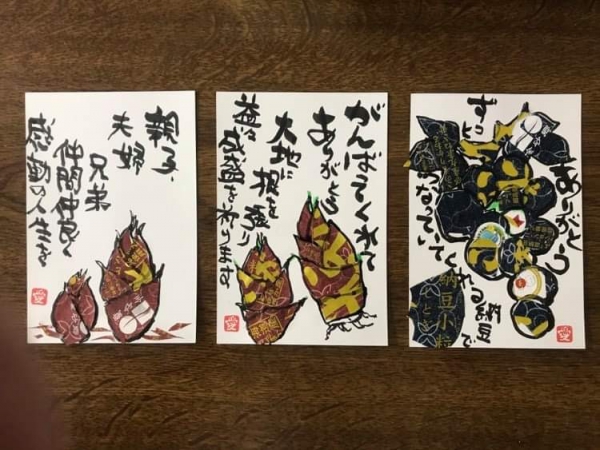 親子、
夫婦
兄弟
仲間仲良く
感動の人生を
がんばってくれて
ありがとう
大地に根を張り
益々成盛を祈ります
ずっと
ながっていてくれる
納豆で
ありがとう
納豆小粒